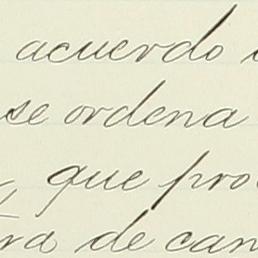 acuerdo
se ordena
, que pro
ra de can